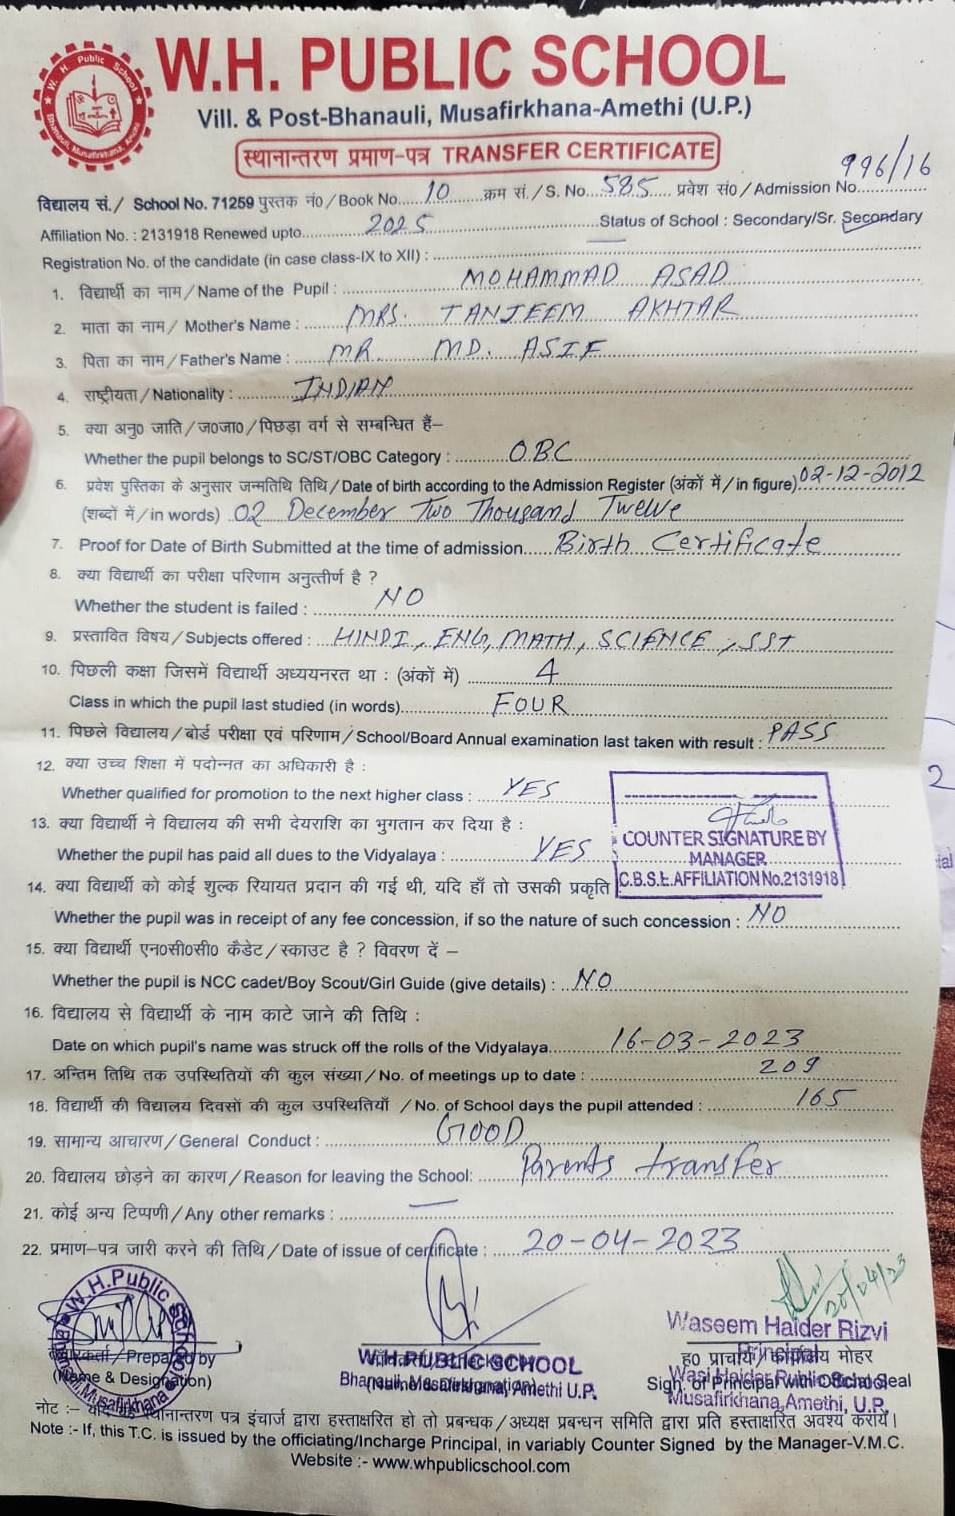 W. H. Public School
Bhanauli, Musafirkhana, Amethi
W.H. PUBLIC SCHOOL
Vill. & Post-Bhanauli, Musafirkhana-Amethi (U.P.)
स्थानान्तरण प्रमाण-पत्र TRANSFER CERTIFICATE
996/16
विद्यालय सं./ School No. 71259 पुस्तक नं०/Book No. 10 क्रम सं./S. No. 585 प्रवेश सं०/Admission No.
Affiliation No. : 2131918 Renewed upto 2025 Status of School : Secondary/Sr. Secondary
Registration No. of the candidate (in case class-IX to XII) :
1. विद्यार्थी का नाम/Name of the Pupil : MOHAMMAD ASAD
2. माता का नाम/ Mother's Name : MRS. TANJEEM AKHTAR
3. पिता का नाम/Father's Name : MR. MD. ASIF
4. राष्ट्रीयता/Nationality : INDIAN
5. क्या अनु० जाति/ज०जा०/पिछड़ा वर्ग से सम्बन्धित हैं–
Whether the pupil belongs to SC/ST/OBC Category : OBC
6. प्रवेश पुस्तिका के अनुसार जन्मतिथि तिथि/Date of birth according to the Admission Register (अंकों में/in figure) 02-12-2012
(शब्दों में/in words) 02 December Two Thousand Twelve
7. Proof for Date of Birth Submitted at the time of admission Birth Certificate
8. क्या विद्यार्थी का परीक्षा परिणाम अनुत्तीर्ण है ?
Whether the student is failed : NO
9. प्रस्तावित विषय/Subjects offered : HINDI, ENG, MATH, SCIENCE, SST
10. पिछली कक्षा जिसमें विद्यार्थी अध्ययनरत था : (अंकों में) 4
Class in which the pupil last studied (in words) FOUR
11. पिछले विद्यालय/बोर्ड परीक्षा एवं परिणाम/School/Board Annual examination last taken with result : PASS
12. क्या उच्च शिक्षा में पदोन्नत का अधिकारी है :
Whether qualified for promotion to the next higher class : YES
13. क्या विद्यार्थी ने विद्यालय की सभी देयराशि का भुगतान कर दिया है :
Whether the pupil has paid all dues to the Vidyalaya : YES
COUNTER SIGNATURE BY
MANAGER
C.B.S.E. AFFILIATION No.2131918
14. क्या विद्यार्थी को कोई शुल्क रियायत प्रदान की गई थी, यदि हाँ तो उसकी प्रकृति
Whether the pupil was in receipt of any fee concession, if so the nature of such concession : NO
15. क्या विद्यार्थी एन०सी०सी० कैडेट/स्काउट है ? विवरण दें –
Whether the pupil is NCC cadet/Boy Scout/Girl Guide (give details) : NO
16. विद्यालय से विद्यार्थी के नाम काटे जाने की तिथि :
Date on which pupil's name was struck off the rolls of the Vidyalaya 16-03-2023
17. अन्तिम तिथि तक उपस्थितियों की कुल संख्या/No. of meetings up to date : 209
18. विद्यार्थी की विद्यालय दिवसों की कुल उपस्थितियाँ /No. of School days the pupil attended : 165
19. सामान्य आचारण/General Conduct : GOOD
20. विद्यालय छोड़ने का कारण/Reason for leaving the School: Parents transfer
21. कोई अन्य टिप्पणी/Any other remarks : —
22. प्रमाण-पत्र जारी करने की तिथि/Date of issue of certificate : 20-04-2023
20/04/23
W.H.Public School
Bhanauli, Musafirkhana
Prepared by
(Name & Designation)
W.H.PUBLIC SCHOOL
Bhanauli, Amethi U.P.
(Name & Designation)
Waseem Haider Rizvi
Principal
ह० प्राचार्य/कार्यालय मोहर
Wasi Haider Public School
Sign. of Principal with Official Seal
Musafirkhana, Amethi, U.P.
नोट :– यदि स्थानान्तरण पत्र इंचार्ज द्वारा हस्ताक्षरित हो तो प्रबन्धक/अध्यक्ष प्रबन्धन समिति द्वारा प्रति हस्ताक्षरित अवश्य करायें।
Note :- If, this T.C. is issued by the officiating/Incharge Principal, in variably Counter Signed by the Manager-V.M.C.
Website :- www.whpublicschool.com
2